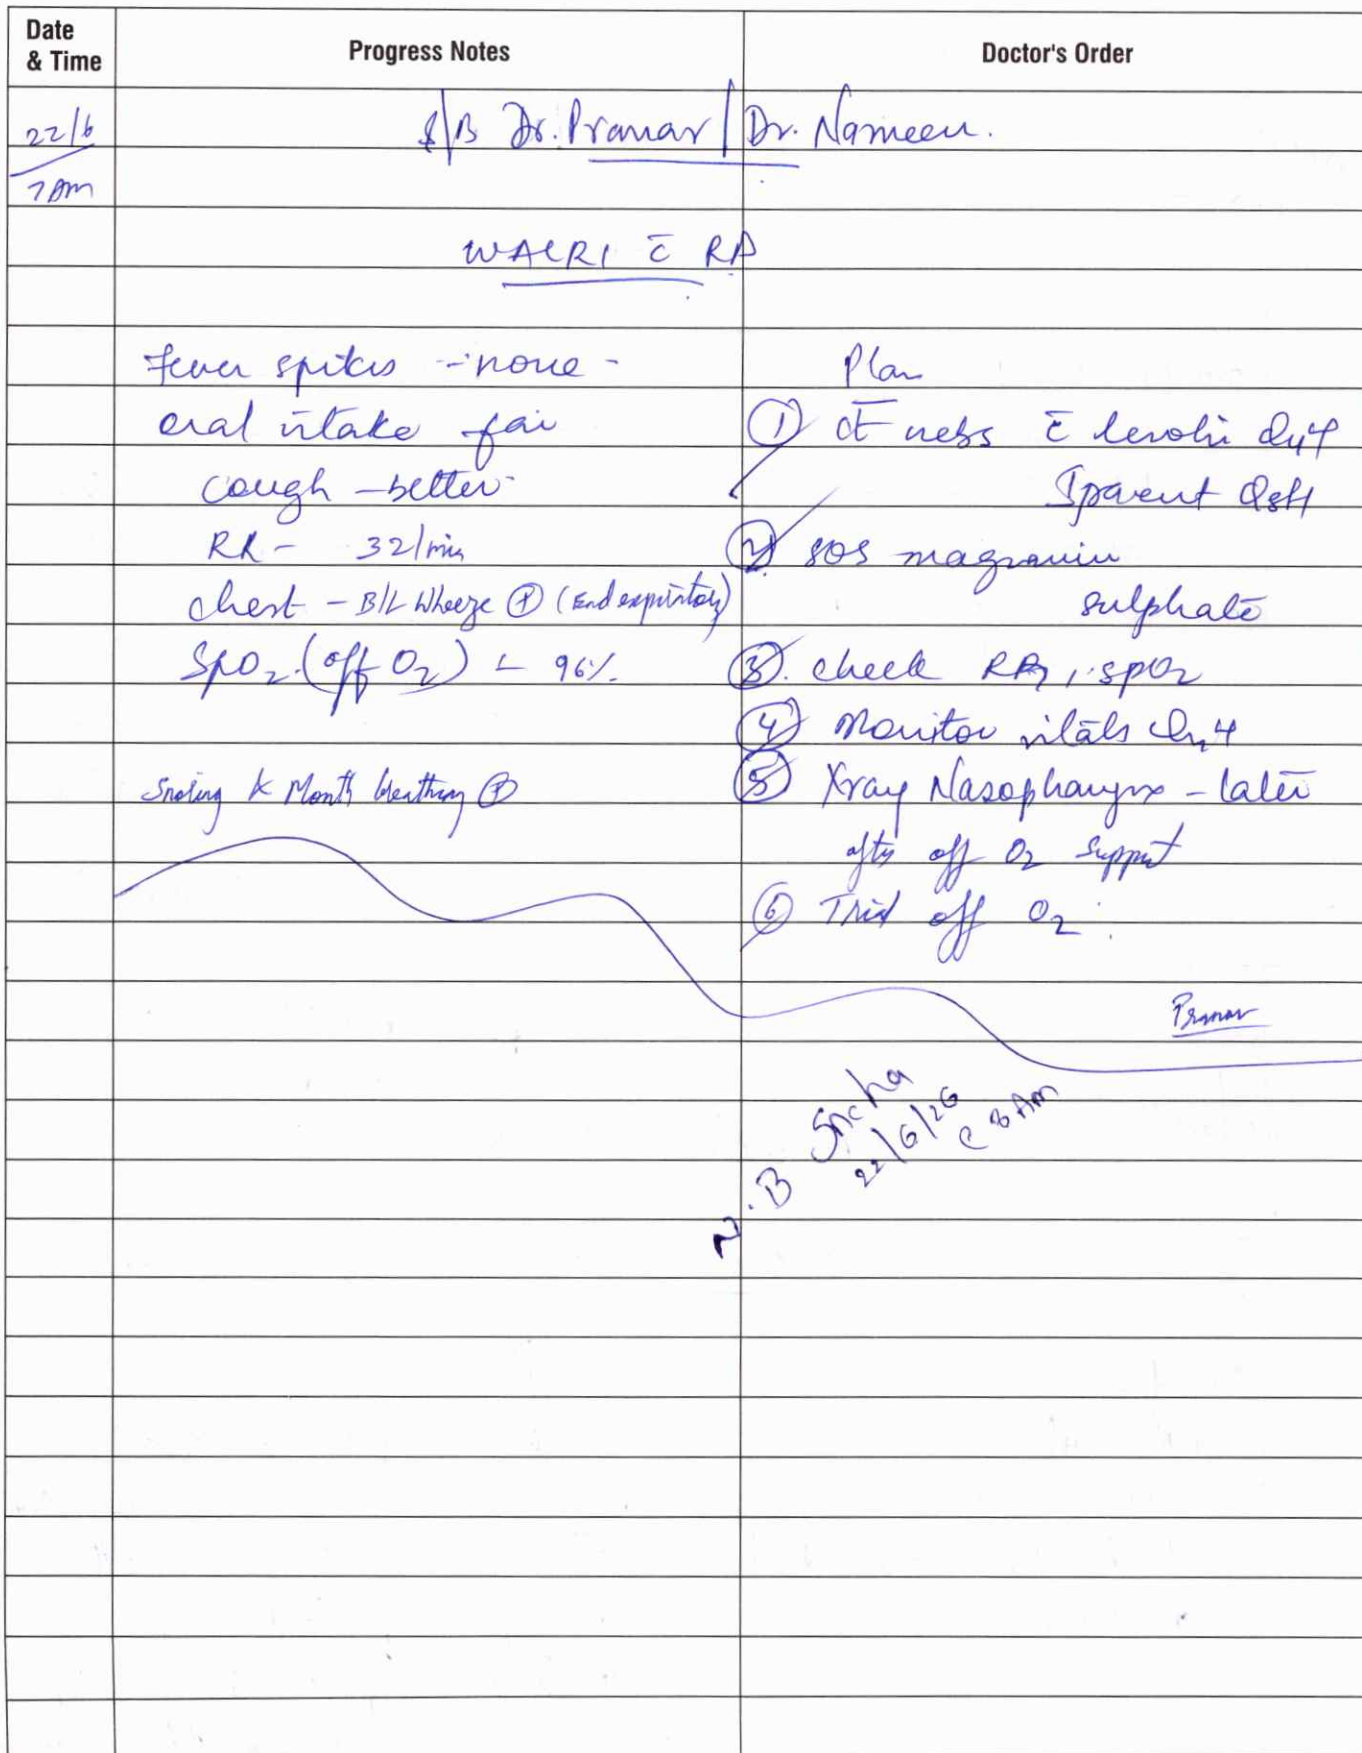 Date & Time
Progress Notes
Doctor's Order
22/6
7 Am
S/B Dr. Pranav / Dr. Nameen.
WALRI c̄ RA
Fever spikes - none -
oral intake fair
cough - better
RR - 32/min
chest - B/L Wheeze ⊕ (End expiratory)
SpO2 (off O2) - 96%
Snoring & Mouth breathing ⊕
Plan
① ct nebs c̄ levolin Q4H
Ipravent Q8H
② SOS magnesium
sulphate
③ check RR, SpO2
④ Monitor vitals Q4
⑤ Xray Nasopharynx - later
after off O2 support
⑥ Trial off O2
Pranav
N.B Sneha
22/6/26
@ 8 Am